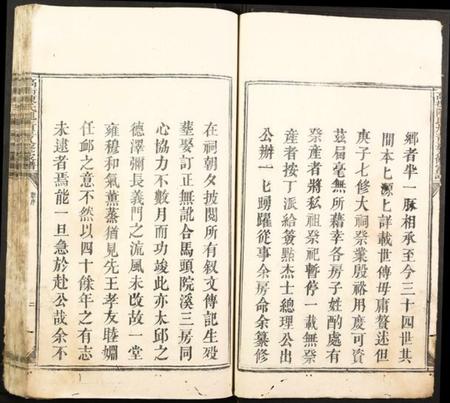 鄉者半一脈相承至今三十四世其
間本上源上詳載世傳毋庸贅述但
庚子七修大祠祭業殷裕用慶可資
茲屆毫無所藉幸各房子姓酌處有
祭產者將私祖祭祀暫停一載無祭
產者按丁派給簽點杰士總理公出
公辦一七踴躍從事余房命余纂修
在祠朝夕披閱所有叙文傳記生歿
塟娶訂正無訛合馬頭院溪三房同
心協力不數月而功竣此亦太邱之
德澤彌長義門之流風未改故一堂
雍穆和氣薰蒸猶見先王孝友睦婣
任䘏之意不然以四十餘年之有志
未逮者焉能一旦急於赴公哉余不